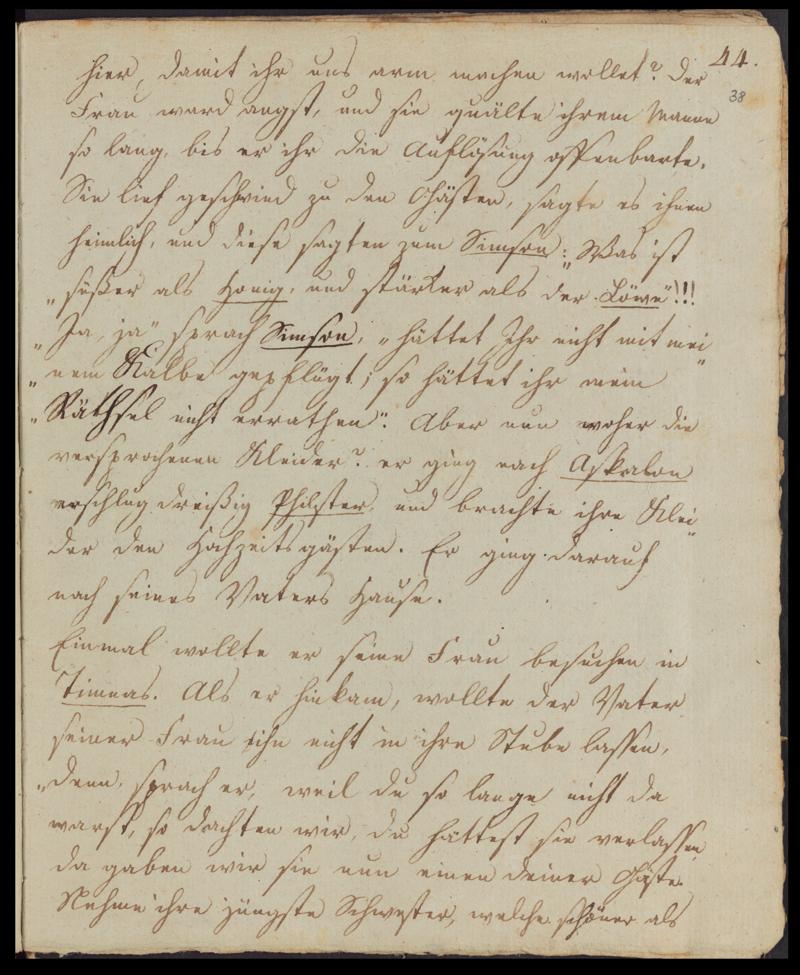 44.
38
hier, damit ihr uns arm machen wollet? Der
Frau ward angst, und sie quälte ihrem Manne
so lang, bis er ihr die Auflösung offenbarte.
Sie lief geschwind zu den Gästen, sagte es ihnen
heimlich, und diese sagten zum Simson: „Was ist
„süßer als Honig, und stärker als der Löwe"!!!
„Ja, ja" sprach Simson, „hättet Ihr nicht mit mei„
„nem Kalbe gepflügt; so hättet ihr mein
„Räthsel nicht errathen". Aber nun woher die
versprochenen Kleider? er ging nach Askalon
erschlug dreißig Philister, und brachte ihre Klei„
der den Hochzeitsgästen. Er ging darauf
nach seines Vaters Hause.
Einmal wollte er seine Frau besuchen in
Timnas. Als er hinkam, wollte der Vater
seiner Frau ihn nicht in ihre Stube lassen,
„denn, sprach er, weil du so lange nicht da
warst, so dachten wir, du hättest sie verlassen
da gaben wir sie nun einen deiner Gäste.
Nehme ihre jüngste Schwester, welche schöner als